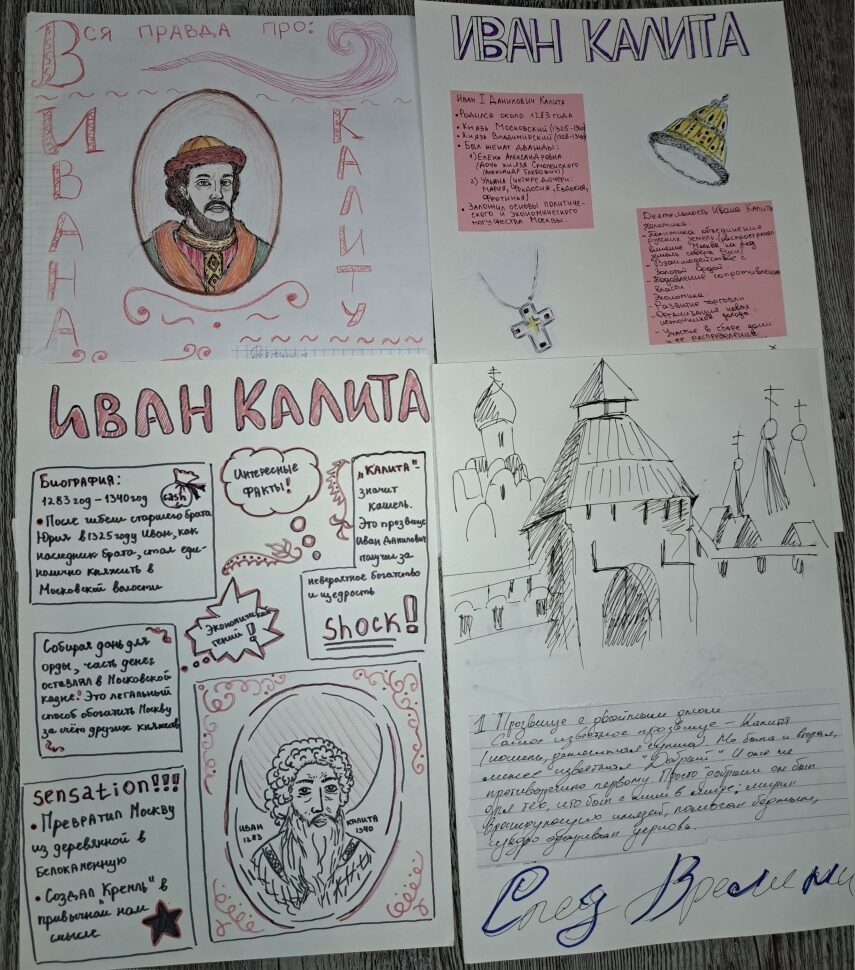 Вся правда про:
Ивана
Калиту
Иван Калита
Иван I Данилович Калита
• Родился около 1283 года
• Князь Московский (1325-1340)
• Князь Владимирский (1328-1340)
• Был женат дважды:
1) Елена Александровна
(Дочь князя Смоленского
(Александр Глебович)
2) Ульяна (четыре дочери:
Мария, Феодосия, Евдокия,
Феотинья)
• Заложил основы политиче-
ского и экономического
могущества Москвы.
Деятельность Ивана Калиты
Политика
- Политика объединения
русских земель (распространил
влияние Москвы на ряд
земель севера Руси)
- Взаимодействие с
Золотой Ордой
- Подавление сопротивления
власти
Экономика
- Развитие торговли
- Организация новых
источников дохода
- Участие в сборе дани
и ее распределения
Иван Калита
Биография:
1283 год - 1340 год
cash
• После гибели старшего брата
Юрия в 1325 году Иван, как
наследник брата, стал еди-
нолично княжить в
Московской волости
Интересные
факты!
"Калита"-
значит
кошель.
Это прозвище
Иван Данилович
получил за
невероятное богатство
и щедрость
Shock!
Экономический
гений!?
Собирая дань для
орды, часть денег
оставлял в Московской
казне! Это легальный
способ обогатить Москву
за счёт других князей
sensation!!!
• Превратил Москву
из деревянной в
Белокаменную
• Создал "Кремль" в
привычном нам
смысле
Иван
1283
Калита
1340
1 Прозвище с двойным дном
Самое известное прозвище - Калита
(кошель, денежная сумка). Но была и вторая,
менее известная "Добрый". И оно не
противоречило первому. Просто добрым он был
для тех, кто был с ним в мире: мирил
враждующих князей, помогал бедным,
щедро одаривал церковь.
След Времени